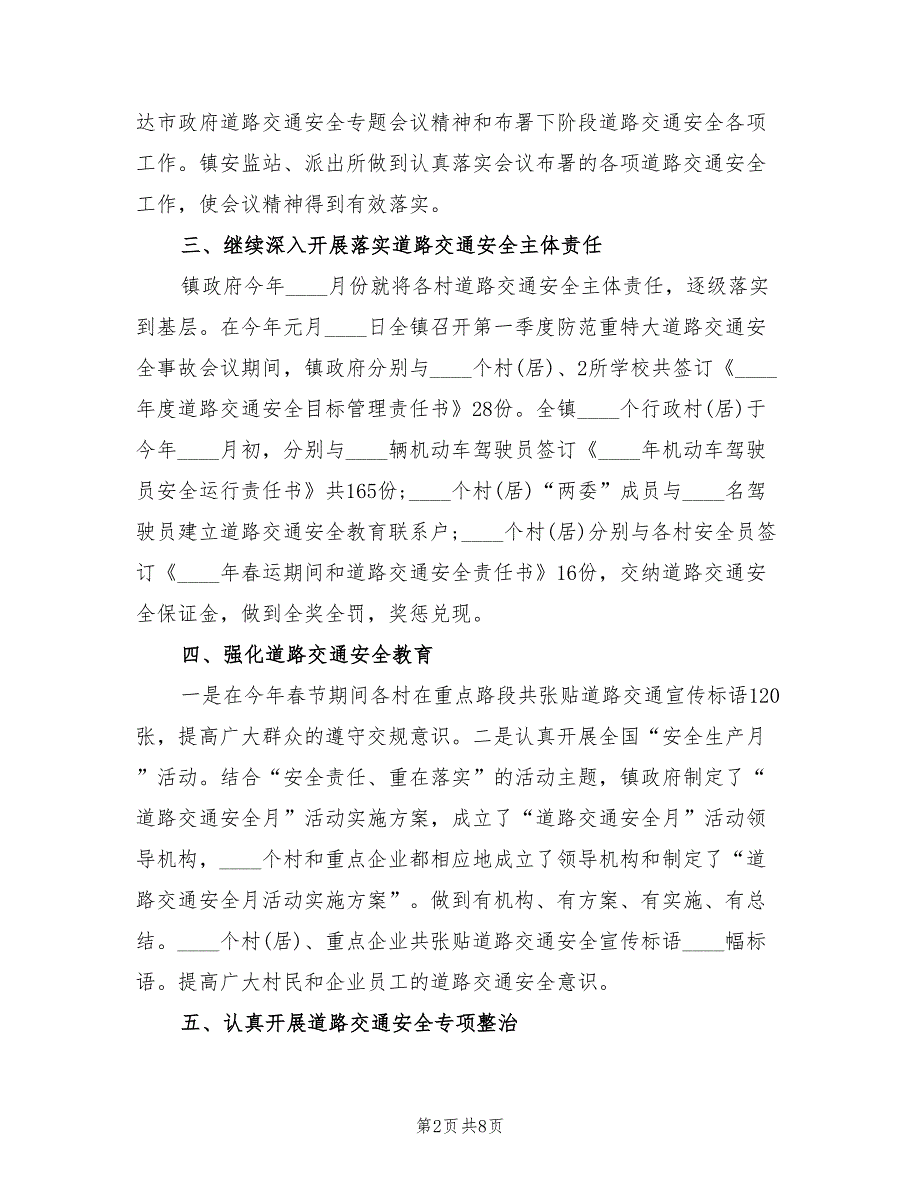 达市政府道路交通安全专题会议精神和布署下阶段道路交通安全各项
工作。镇安监站、派出所做到认真落实会议布署的各项道路交通安全
工作，使会议精神得到有效落实。
三、继续深入开展落实道路交通安全主体责任
镇政府今年____月份就将各村道路交通安全主体责任，逐级落实
到基层。在今年元月____日全镇召开第一季度防范重特大道路交通安
全事故会议期间，镇政府分别与____个村(居)、2所学校共签订《____
年度道路交通安全目标管理责任书》28份。全镇____个行政村(居)于
今年____月初，分别与____辆机动车驾驶员签订《____年机动车驾驶
员安全运行责任书》共165份;____个村(居)“两委”成员与____名驾
驶员建立道路交通安全教育联系户;____个村(居)分别与各村安全员签
订《____年春运期间和道路交通安全责任书》16份，交纳道路交通安
全保证金，做到全奖全罚，奖惩兑现。
四、强化道路交通安全教育
一是在今年春节期间各村在重点路段共张贴道路交通宣传标语120
张，提高广大群众的遵守交规意识。二是认真开展全国“安全生产月
”活动。结合“安全责任、重在落实”的活动主题，镇政府制定了“
道路交通安全月”活动实施方案，成立了“道路交通安全月”活动领
导机构，____个村和重点企业都相应地成立了领导机构和制定了“道
路交通安全月活动实施方案”。做到有机构、有方案、有实施、有总
结。____个村(居)、重点企业共张贴道路交通安全宣传标语____幅标
语。提高广大村民和企业员工的道路交通安全意识。
五、认真开展道路交通安全专项整治
第2页 共8页